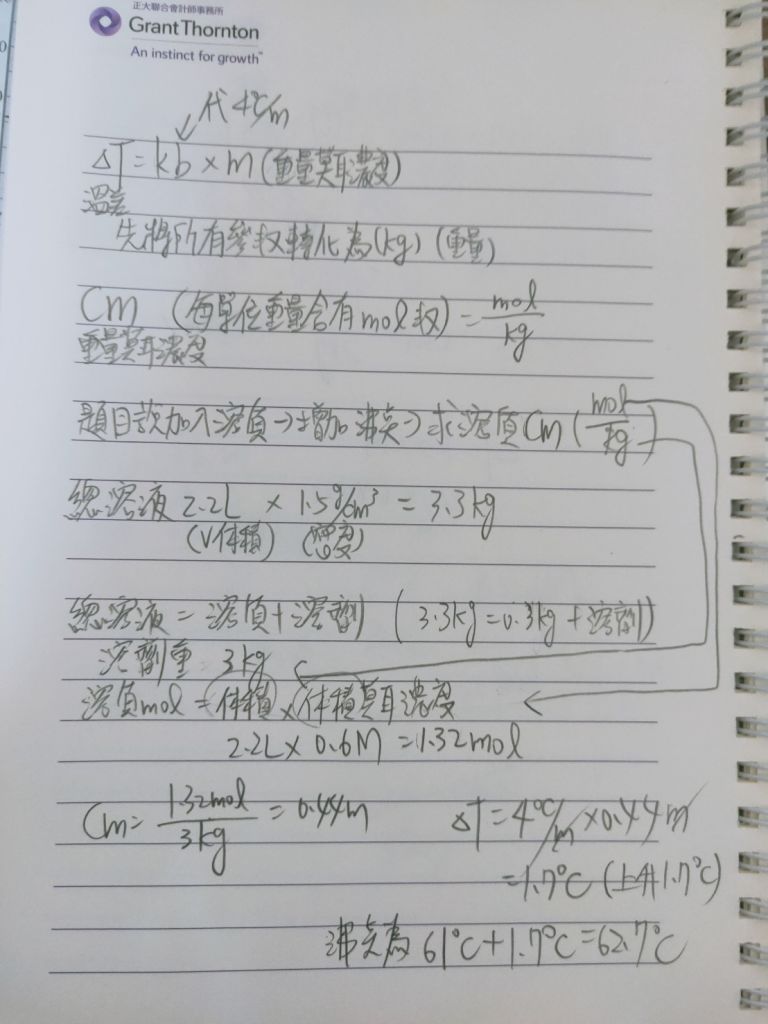 正大聯合會計師事務所
Grant Thornton
An instinct for growth™
代 4℃/m
ΔT = kb × m (重量莫耳濃度)
溫差
先將所有參数轉化為(kg) (重量)
Cm (每單位重量含有mol数) = mol/kg
重量莫耳濃度
題目説加入溶質→增加沸点→求溶質Cm (mol/kg)
總溶液 2.2L × 1.5g/cm³ = 3.3kg
(V体積) (密度)
總溶液 = 溶質+溶劑 (3.3kg=0.3kg+溶劑)
溶劑重 = 3kg
溶質mol = (体積) × (体積莫耳濃度
2.2L × 0.6M = 1.32mol
Cm = 1.32mol/3kg = 0.44m
ΔT = 4℃/m × 0.44m
= 1.7℃ (上升1.7℃)
沸点為 61℃ + 1.7℃ = 62.7℃